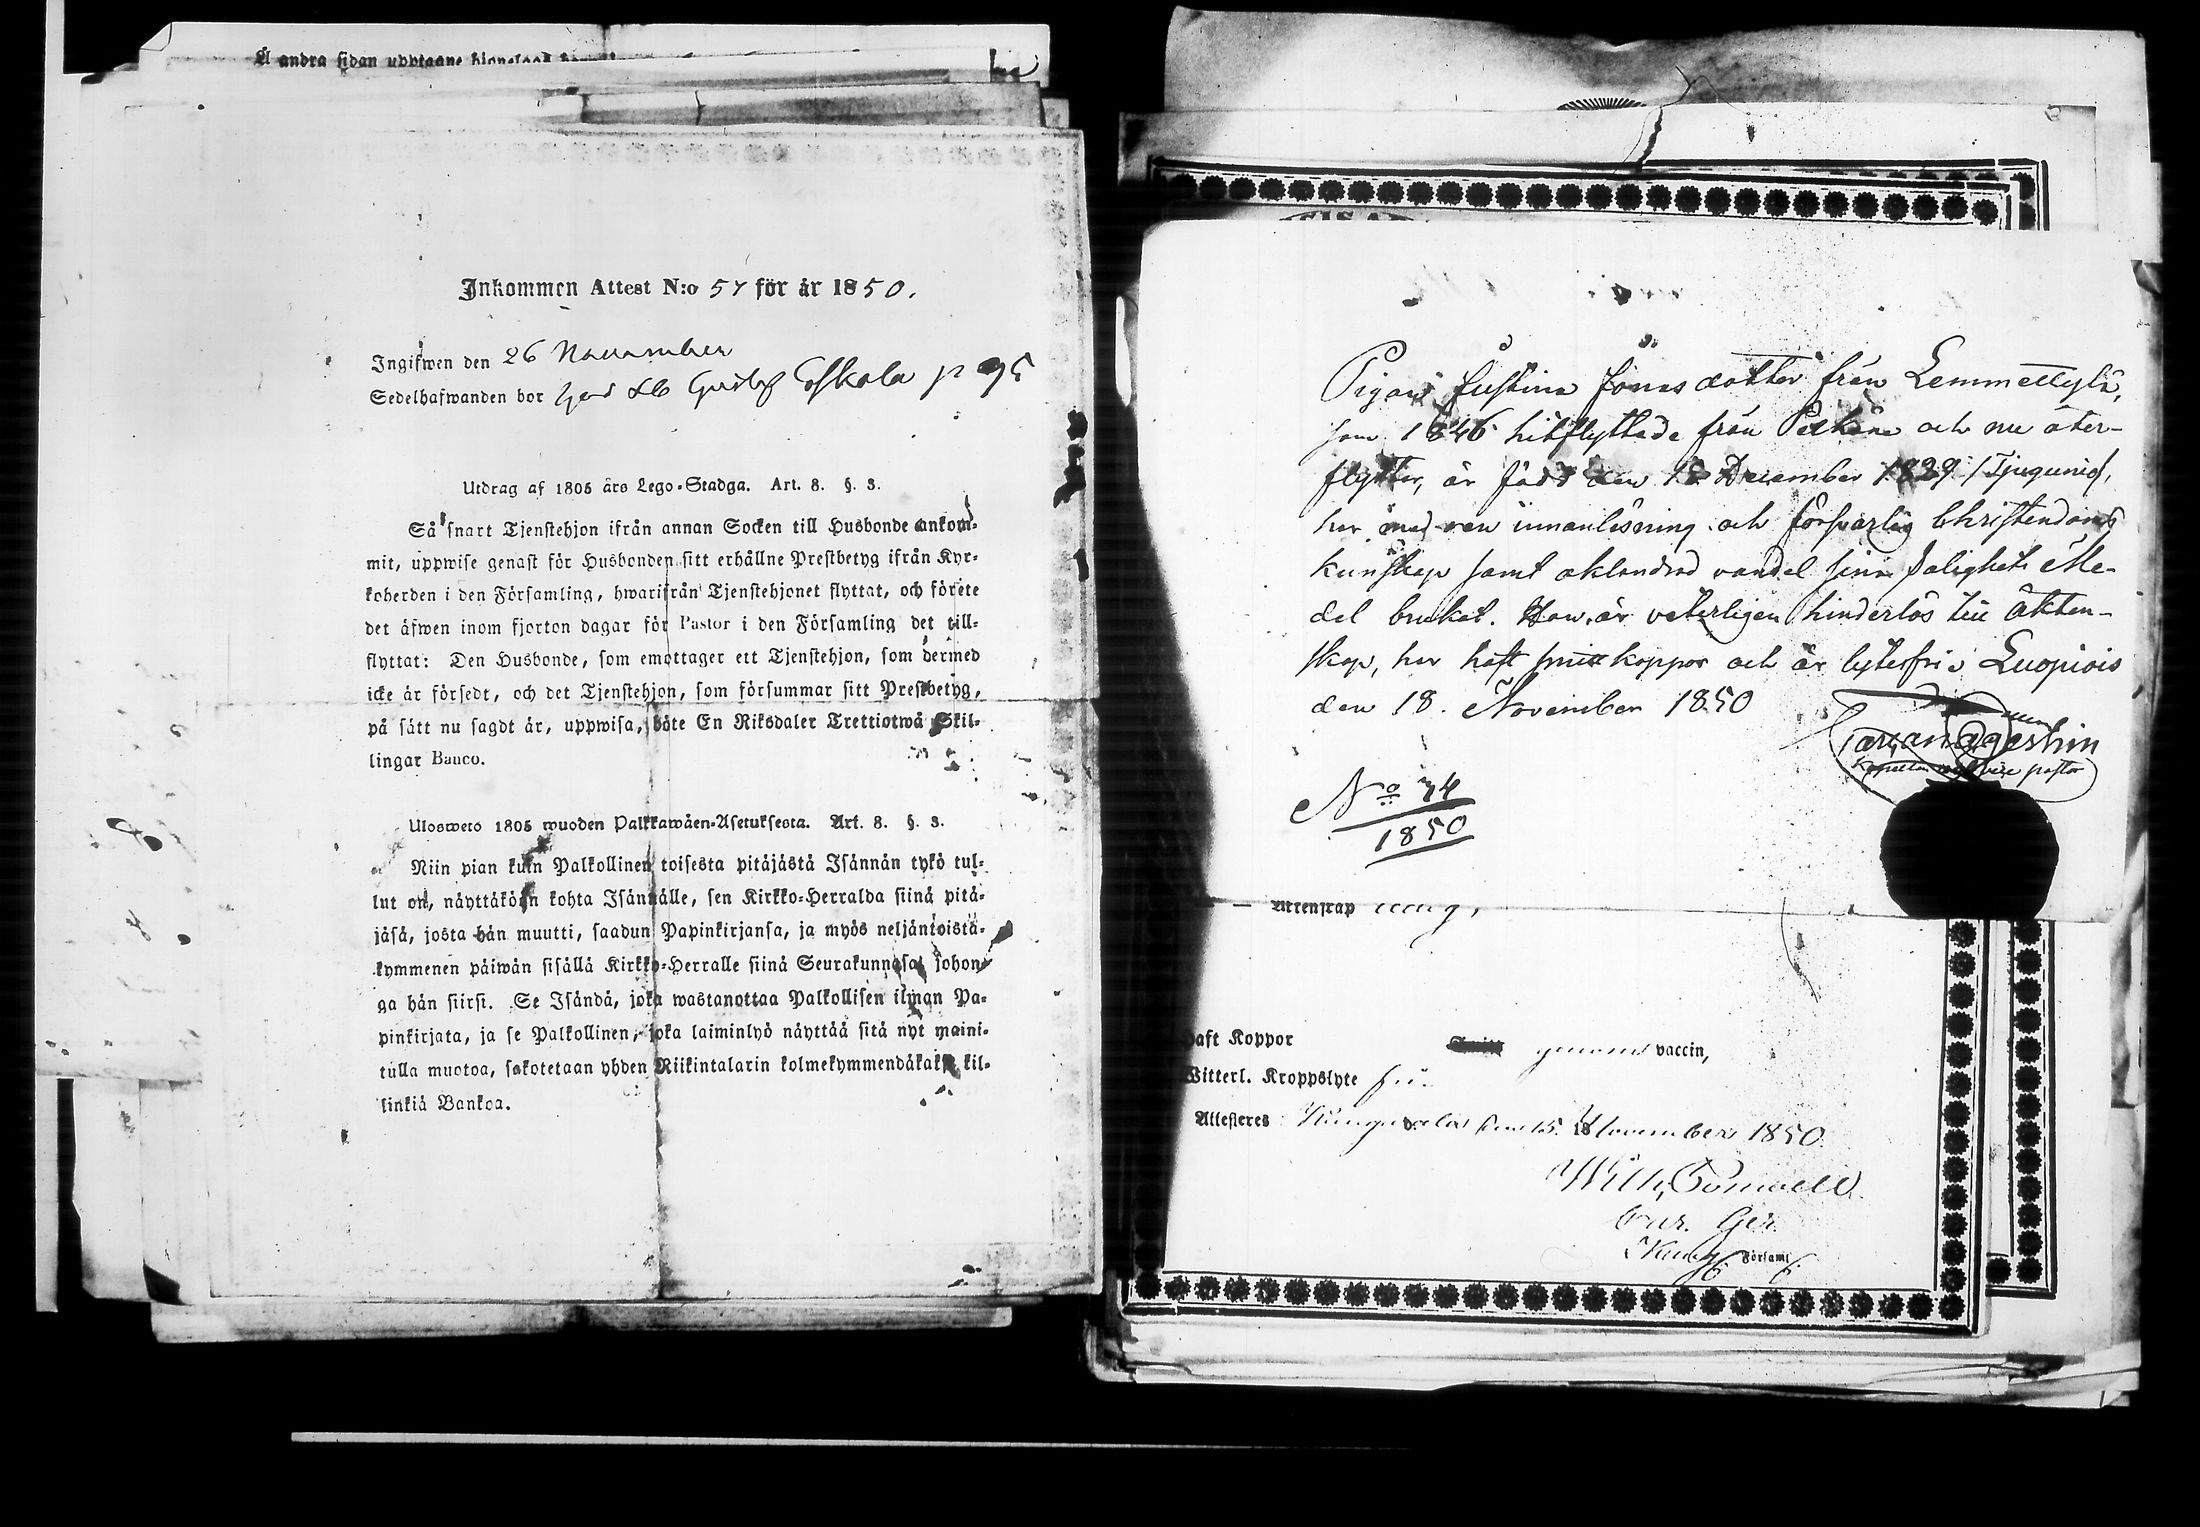 Å andra sidan upptagne
Inkommen Attest N:o 57 för år 1850.
Ingifwen den 26 November
Sedelhafwanden bor hos Gustaf Eskola p 95
Utdrag af 1805 års Lego-Stadga. Art. 8. §. 3.
Så snart Tjenstehjon ifrån annan Socken till Husbonde ankom-
mit, uppwise genast för Husbonden sitt erhållne Prestbetyg ifrån Kyr-
koherden i den Församling, hwarifrån Tjenstehjonet flyttat, och förete
det äfwen inom fjorton dagar för Pastor i den Församling det till-
flyttat: Den Husbonde, som emottager ett Tjenstehjon, som dermed
icke är försedt, och det Tjenstehjon, som försummar sitt Prestbetyg,
på sätt nu sagdt är, uppwisa, böte En Riksdaler Trettiotwå Skil-
lingar Banco.
Uloswetо 1805 wuoden Palkkawäen-Asetuksesta. Art. 8. §. 3.
Niin pian kuin Palkollinen toisesta pitäjästä Isännän tykö tul-
lut on, näyttäkään kohta Isännälle, sen Kirkko-Herralda siinä pitä-
jäsä, josta hän muutti, saadun Papinkirjansa, ja myös neljäntoistä-
kymmenen päiwän sisällä Kirkko-Herralle siinä Seurakunnasa, johon-
ga hän siirsi. Se Isändä, joka wastanottaa Palkollisen ilman Pa-
pinkirjata, ja se Palkollinen, joka laiminlyö näyttää sitä nyt maini-
tulla muotoa, sakotetaan yhden Riikintalarin kolmekymmendäkaksi kil-
linkiä Bankoa.
Pigan Justina Jonasdotter från Lemmettylä,
som 1846 hitflyttade från Pelkäne och nu åter-
flyttar, är född den 18 December 1829 /Tjugunio/,
har med ren innanläsning och försvarlig Christendoms
kunskap samt oklandrad vandel sina salighets Me-
del brukat. Hon är veterligen hinderlös till äkten-
skap, har haft smittkoppor och är lytesfri. Luopiois
den 18. November 1850
No 74
1850
Äktenskap
haft Koppor vaccin,
Witterl. Kroppslyte fri.
Attesteres den 15. November 1850.
Wilh.
Församl.